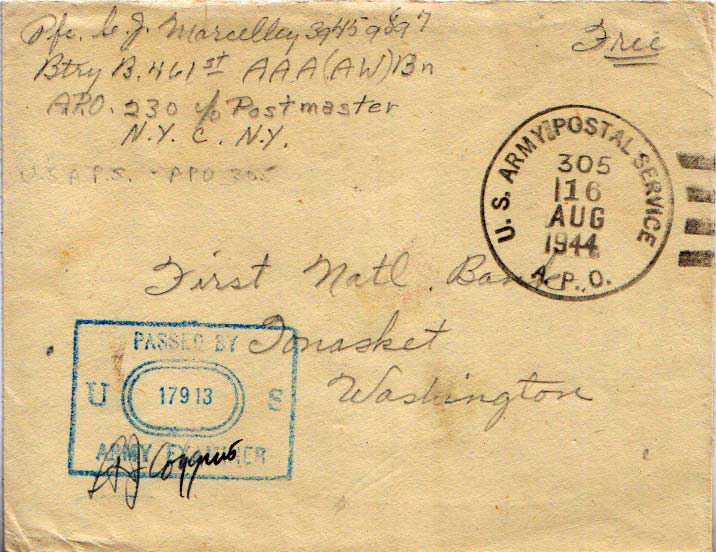 Pfc. C. J. Marcelley 39459897
Free
Btry B. 461st AAA (AW) Bn
APO. 230 c/o Postmaster
N.Y. C. N.Y.
U.S.A.P.S. - APO 305
U. S. ARMY POSTAL SERVICE
305
16
AUG
1944
A.P.O.
First Natl. Bank
Tonasket
Washington
PASSED BY
U 17913 S
ARMY EXAMINER